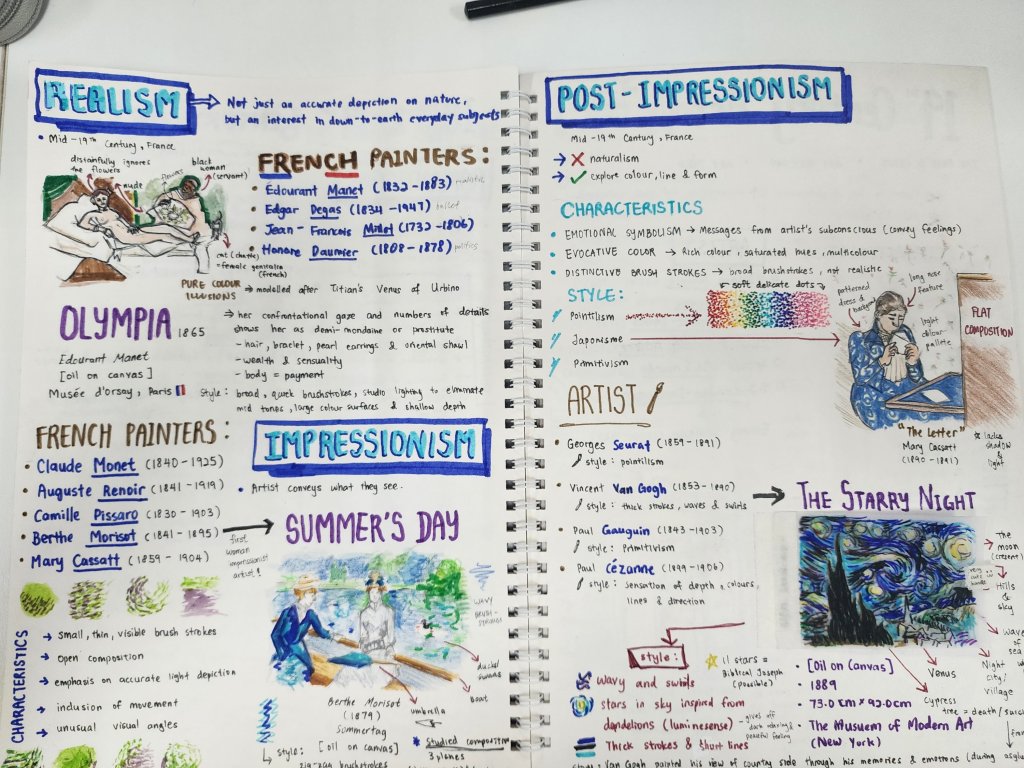 REALISM
Not just an accurate depiction on nature,
but an interest in down-to-earth everyday subjects
• Mid-19th Century, France
distainfully ignores
the flowers
nude
flowers
black
woman
(servant)
cat (chatte)
= female genitalia
(french)
FRENCH PAINTERS:
• Edourant Manet (1832-1883) realistic
• Edgar Degas (1834-1947) ballet
• Jean-Francois Millet (1732-1806)
• Honore Daumier (1808-1878) politics
PURE COLOUR
ILLUSIONS
→ modelled after Titian's Venus of Urbino
OLYMPIA 1865
Edourant Manet
[oil on canvas]
Musée d'orsay, Paris
→ her confrontational gaze and numbers of details
shows her as demi-mondaine or prostitute
- hair, bracelet, pearl earrings & oriental shawl
- wealth & sensuality
- body = payment
Style: broad, quick brushstrokes, studio lighting to eliminate
mid tones, large colour surfaces & shallow depth
FRENCH PAINTERS:
• Claude Monet (1840-1925)
• Auguste Renoir (1841-1919)
• Camille Pissaro (1830-1903)
• Berthe Morisot (1841-1895)
• Mary Cassatt (1859-1904)
IMPRESSIONISM
• Artist conveys what they see.
first
woman
impressionist
artist!
SUMMER'S DAY
WAVY
BRUSH-
STROKES
ducks/
swans
boat
umbrella
CHARACTERISTICS
→ small, thin, visible brush strokes
→ open composition
→ emphasis on accurate light depiction
→ inclusion of movement
→ unusual visual angles
Berthe Morisot
(1879)
Sommertag
↳ style: [oil on canvas]
zig-zag brushstrokes
* Studied composition
3 planes
POST-IMPRESSIONISM
Mid-19th Century, France
→ ✗ naturalism
→ ✓ explore colour, line & form
CHARACTERISTICS
• EMOTIONAL SYMBOLISM → Messages from artist's subconscious (convey feelings)
• EVOCATIVE COLOR → Rich colour, saturated hues, multicolour
• DISTINCTIVE BRUSH STROKES → broad brushstrokes, not realistic
STYLE:
soft delicate dots
Pointilism
Japonisme
Primitivism
patterned
dress &
long nose
feature
light
colour
pallete
FLAT
COMPOSITION
"The Letter"
Mary Cassatt
(1890-1891)
* lacks
shadow
&
light
ARTIST
• Georges Seurat (1859-1891)
style: pointilism
• Vincent Van Gogh (1853-1890)
style: thick strokes, waves and swirls
• Paul Gauguin (1843-1903)
style: Primitivism
• Paul Cézanne (1899-1906)
style: sensation of depth, colours,
lines & direction
THE STARRY NIGHT
The
moon
(crescent)
Hills
&
sky
Night
city/
village
Venus
Cypress
tree = death/
style:
wavy and swirls
stars in sky inspired from
dandelions (luminesense)
Thick strokes & short lines
11 stars =
Biblical Joseph
(possible)
- gives off
peaceful feeling
• [Oil on Canvas]
• 1889
• 73.0cm x 92.0cm
• The Musuem of Modern Art
(New York)
Van Gogh painted his view of country side through his memories & emotions (during